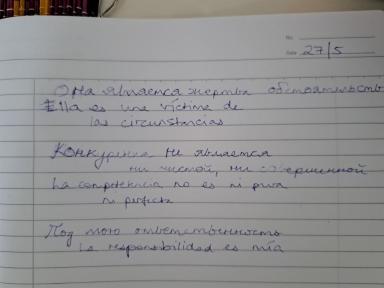 No.
Date 27/5
Она является жертва обстоятельство
Ella es una víctima de
las circunstancias
Конкуренция ни является
ни чистой, ни совершенной
La competencia no es ni pura
ni perfecta
Под мою ответственность
La responsabilidad es mía